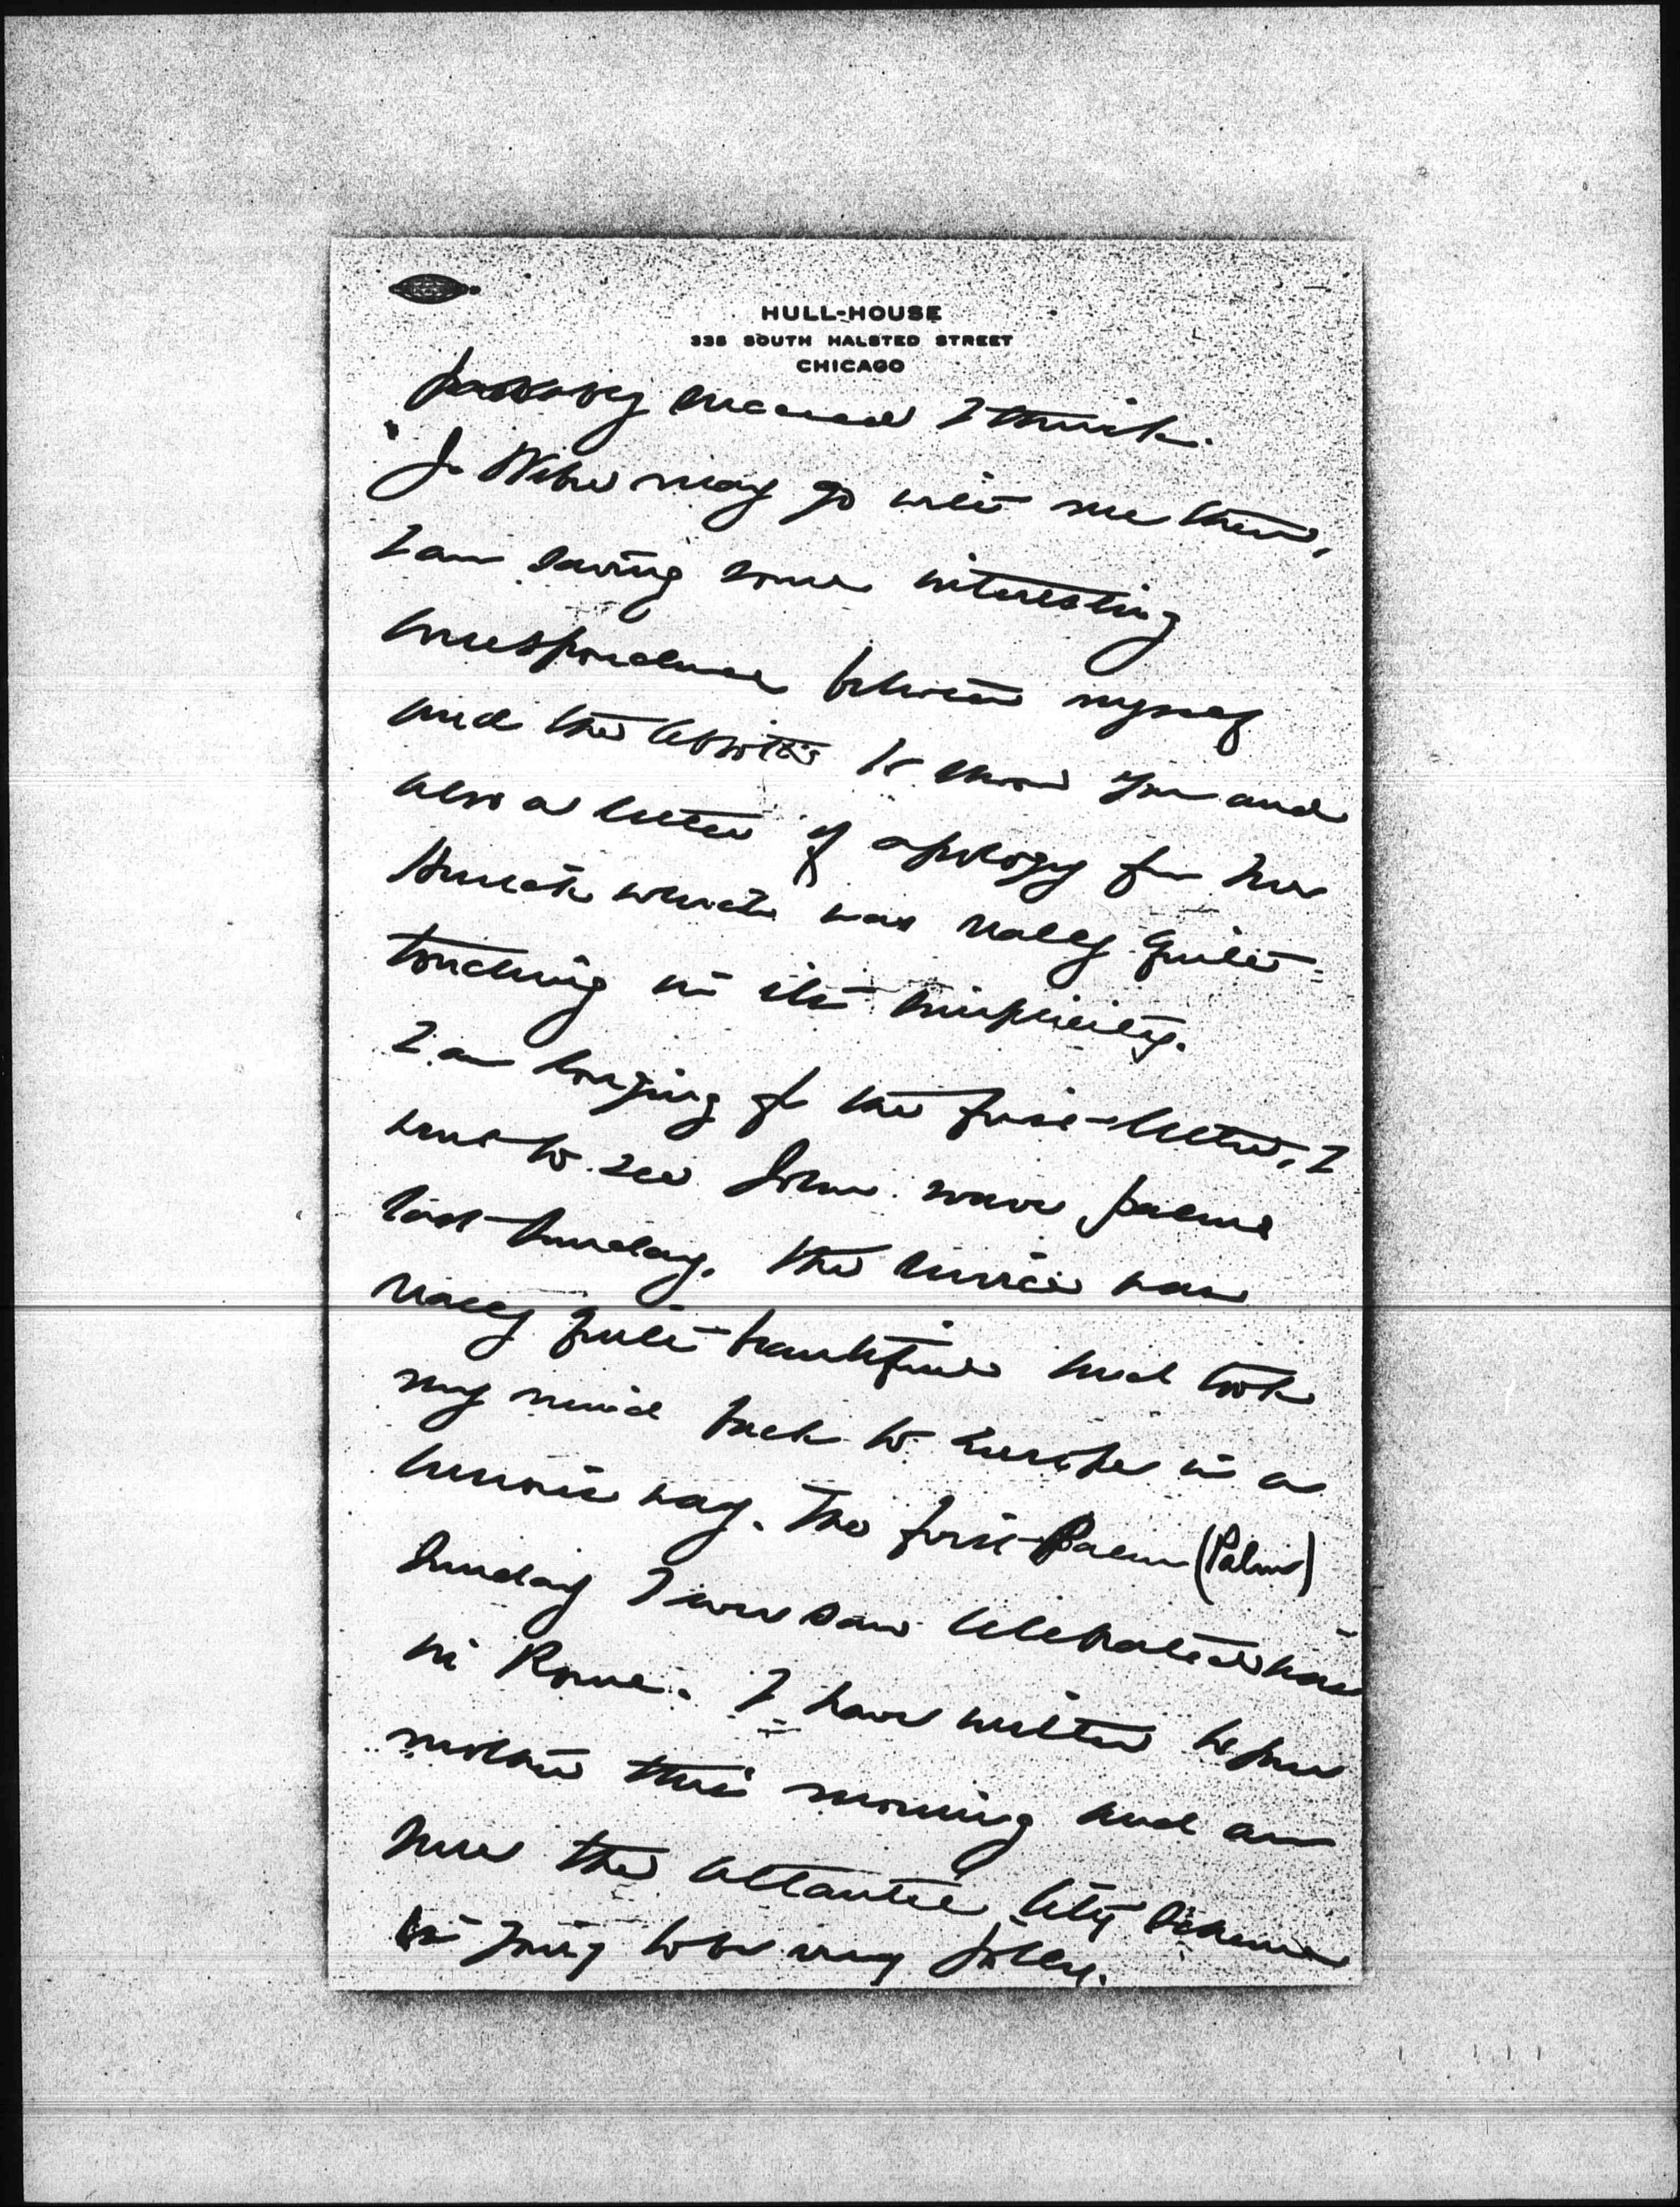 HULL-HOUSE
335 SOUTH HALSTED STREET
CHICAGO
probably I think.
may go with me then,
I am saving some interesting
correspondence between myself
and the Abbotts to show you and
also a letter of apology from
which was really quite
touching in its simplicity.
I am longing for the first letter, I
went to see John wave palms
last Sunday. The service was
really quite beautiful and took
my mind back to Europe in a
curious way. The first Palm (Palm)
Sunday I ever saw celebrated was
in Rome. I have written to your
mother this morning and am
sure the Atlantic City scheme
is going to be very jolly.